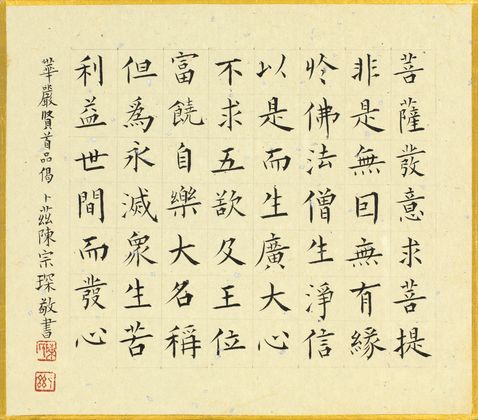 菩薩發意求菩提
非是無囙無有緣
於佛法僧生淨信
以是而生廣大心
不求五欲及王位
富饒自樂大名稱
但爲永滅眾生苦
利益世間而發心
華嚴賢首品偈 卜茲陳宗琛敬書